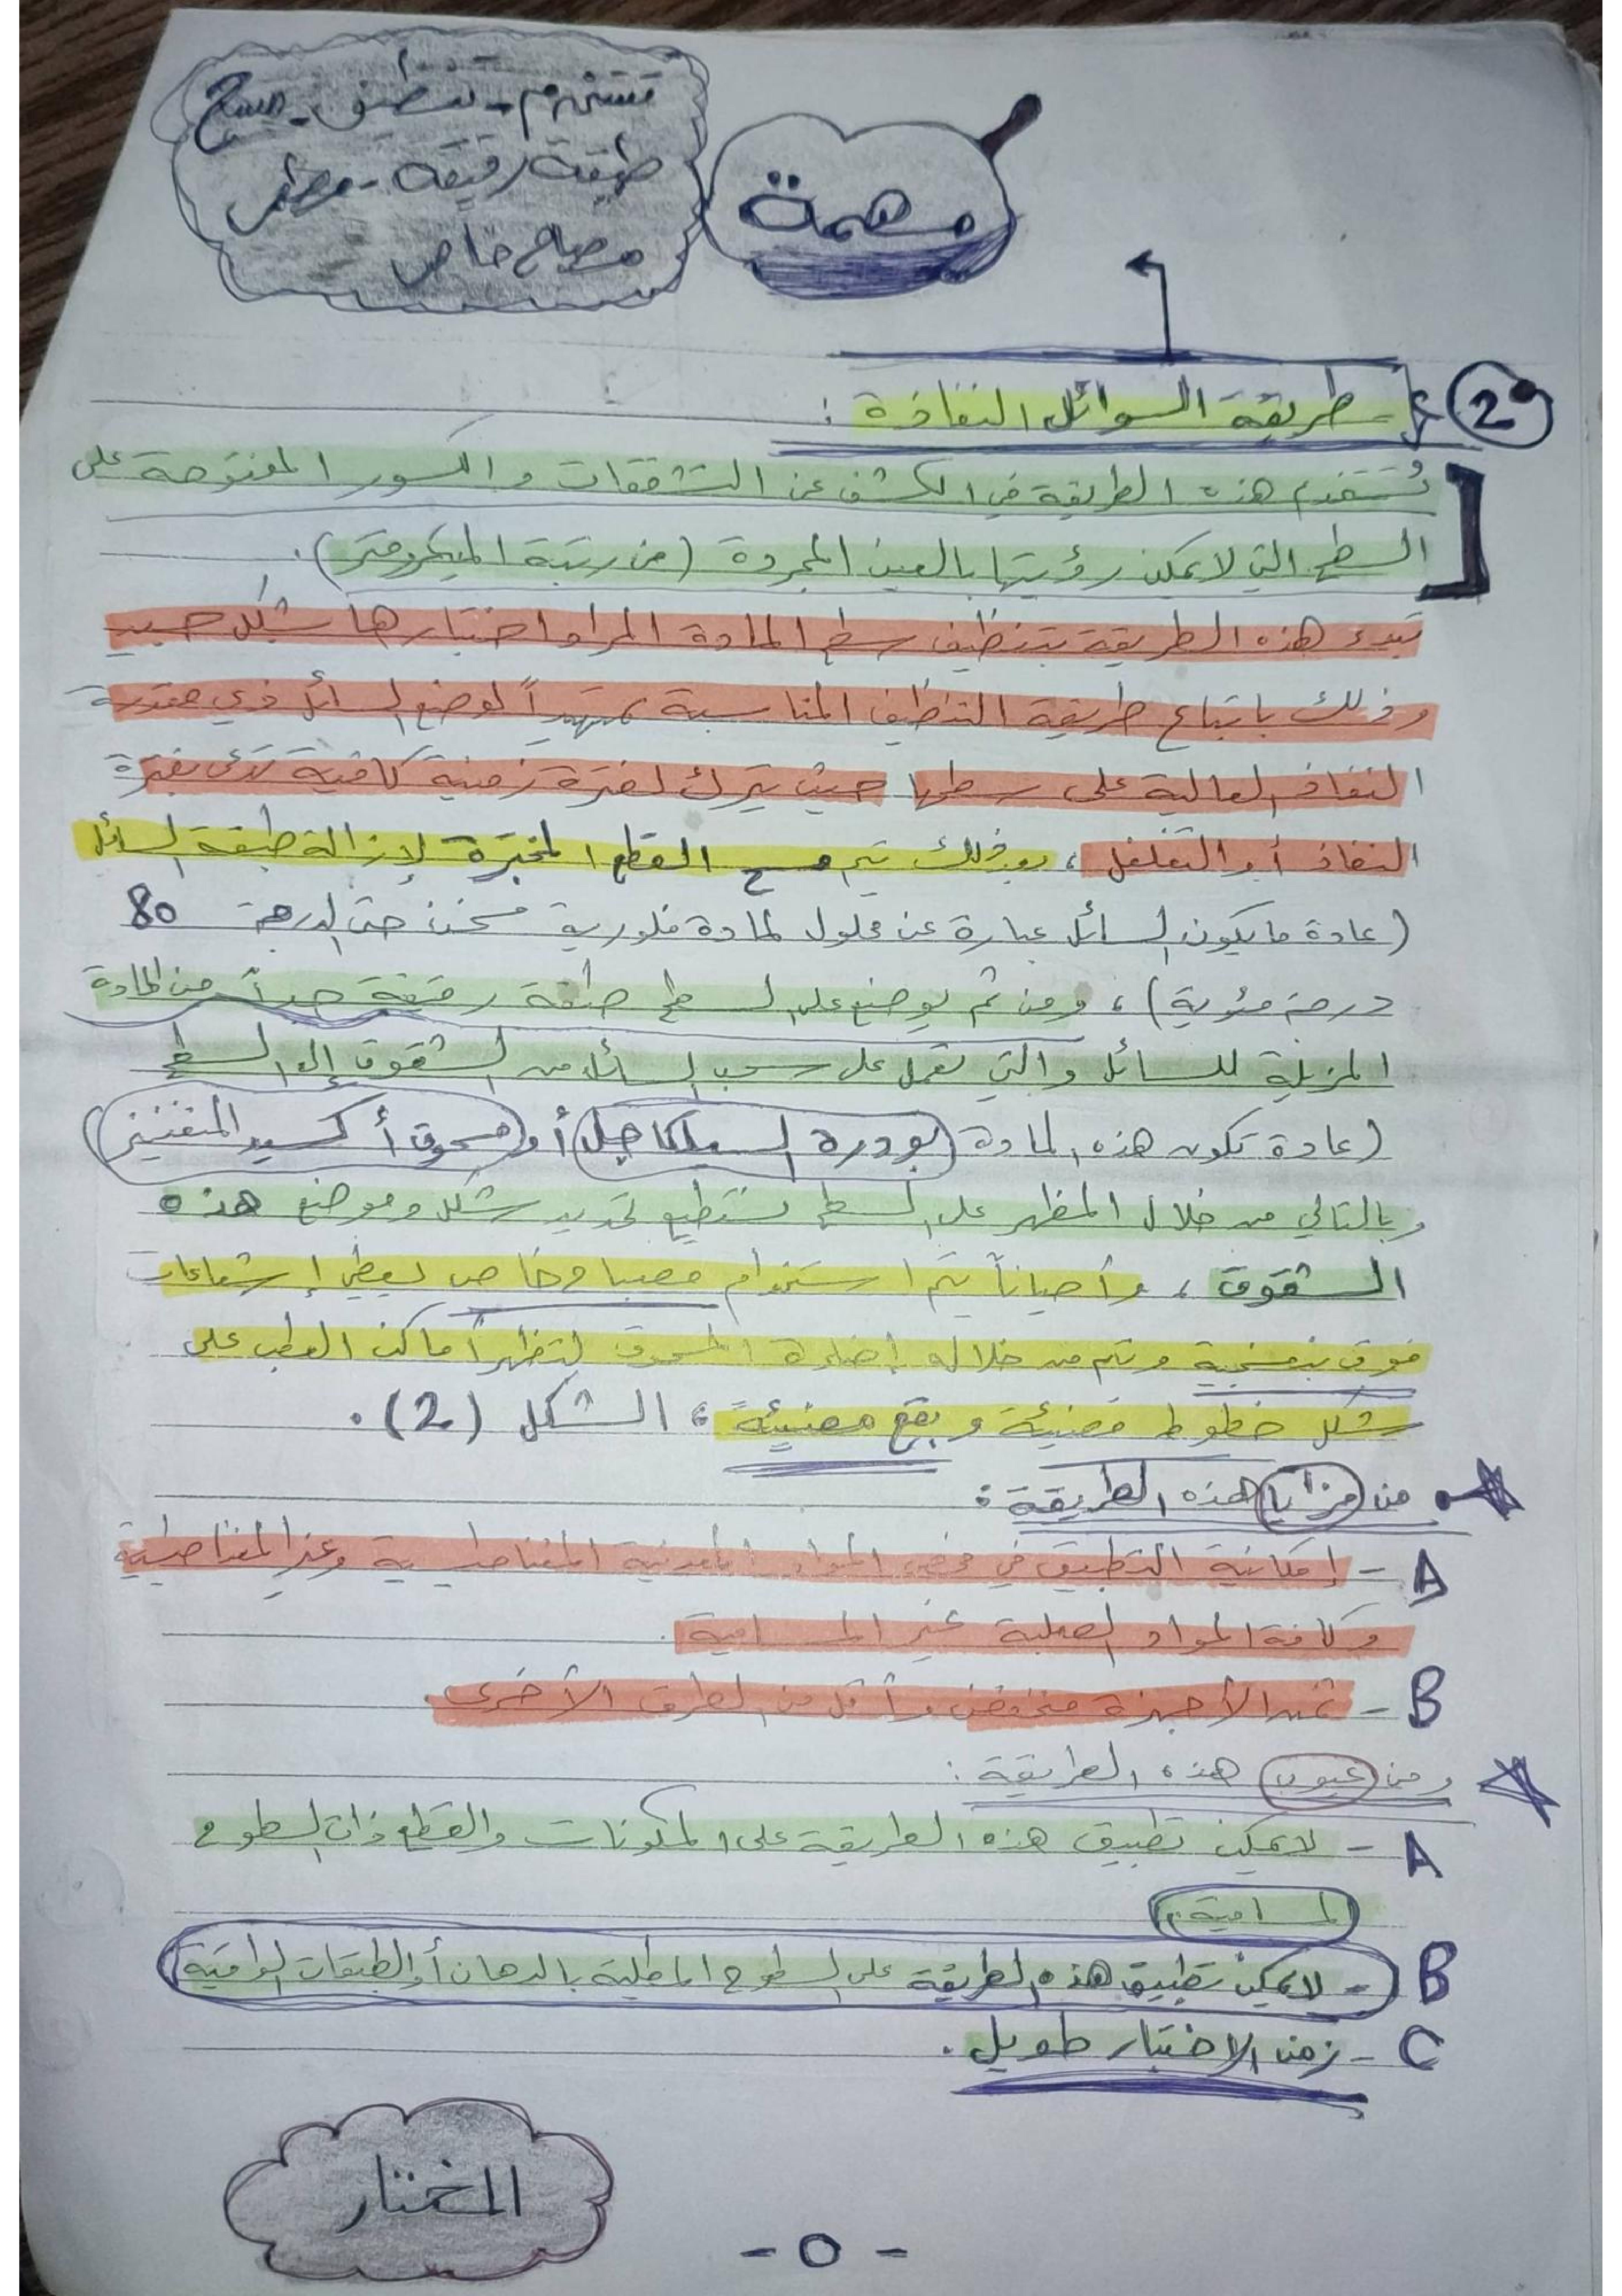 تستخدم - تنظيف - مسح
طبقة رقيقة - مظهر
مصباح خاص
مهمة
2 - طريقة السوائل النفاذة :
تُستخدم هذه الطريقة في الكشف عن التشققات والكسور المفتوحة على
السطح التي لا يمكن رؤيتها بالعين المجردة (من رتبة الميكرومتر).
تبدء هذه الطريقة بتنظيف سطح المادة المراد اختبارها بشكل جيد
وذلك باتباع طريقة التنظيف المناسبة تمهيداً لوضع السائل ذي مقدرة
النفاذ العالية على سطحها حيث يترك لفترة زمنية كافية تدعى بفترة
النفاذ أو التغلغل ، بعد ذلك يتم مسح القطع المختبرة لإزالة طبقة السائل
(عادة ما يكون السائل عبارة عن محلول لمادة فلورية مسخن حتى الدرجة 80
درجة مئوية) ، ومن ثم يوضع على السطح طبقة رقيقة جداً من المادة
المزيلة للسائل والتي تعمل على سحب السائل من الشقوق إلى السطح
(عادة تكون هذه المادة بودرة السيلكاجل أو مسحوق أكسيد المنغنيز)
وبالتالي من خلال المظهر على السطح نستطيع تحديد شكل وموضع هذه
الشقوق ، وأحياناً يتم استخدام مصباح خاص يعطي إشعاعات
فوق بنفسجية ويتم من خلاله إضاءة المسحوق لتظهر أماكن العطب على
شكل خطوط مضيئة وبقع مضيئة ، الشكل (2) .
من مزايا هذه الطريقة :
A - إمكانية التطبيق في فحص المواد المعدنية المغناطيسية وغير المغناطيسية
وكافة المواد الصلبة غير المسامية .
B - ثمن الأجهزة منخفض وأقل من الطرق الأخرى .
ومن عيوب هذه الطريقة :
A - لا يمكن تطبيق هذه الطريقة على المكونات والقطع ذات السطوح
المسامية .
B - لا يمكن تطبيق هذه الطريقة على السطوح المطلية بالدهان أو الطبقات الواقية
C - زمن الاختبار طويل .
المختار
- ٥ -